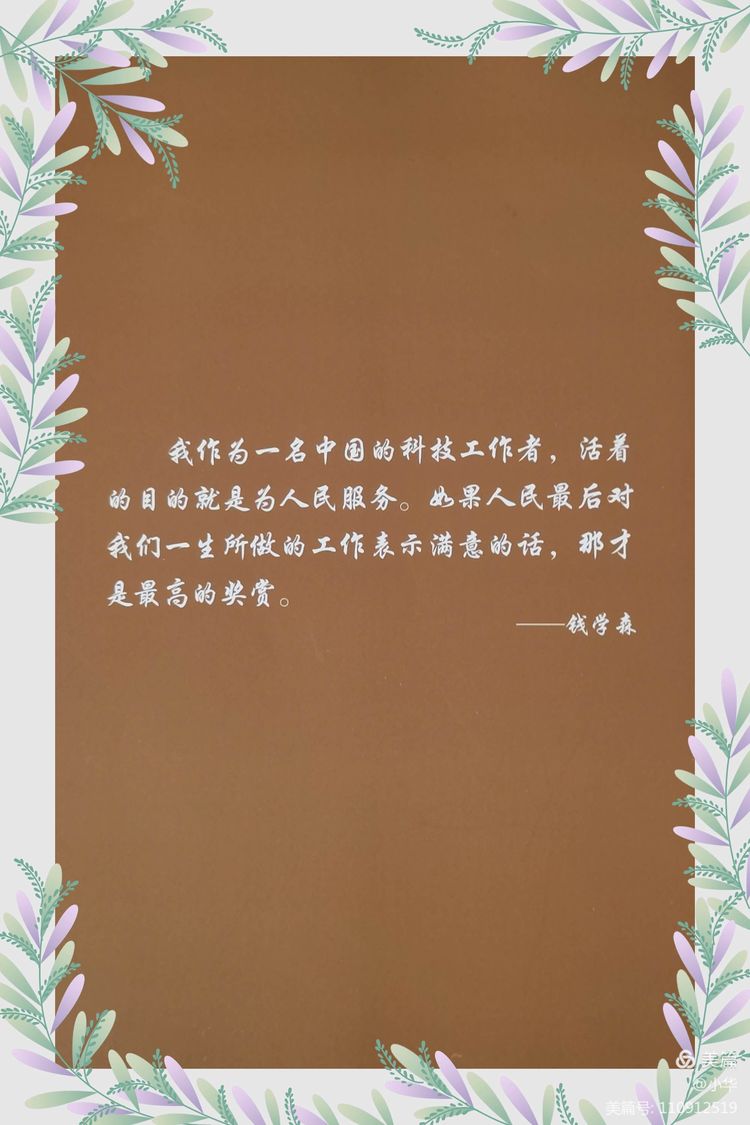 我作为一名中国的科技工作者，活着
的目的就是为人民服务。如果人民最后对
我们一生所做的工作表示满意的话，那才
是最高的奖赏。
——钱学森
美篇
@小华
美篇号: 110912519